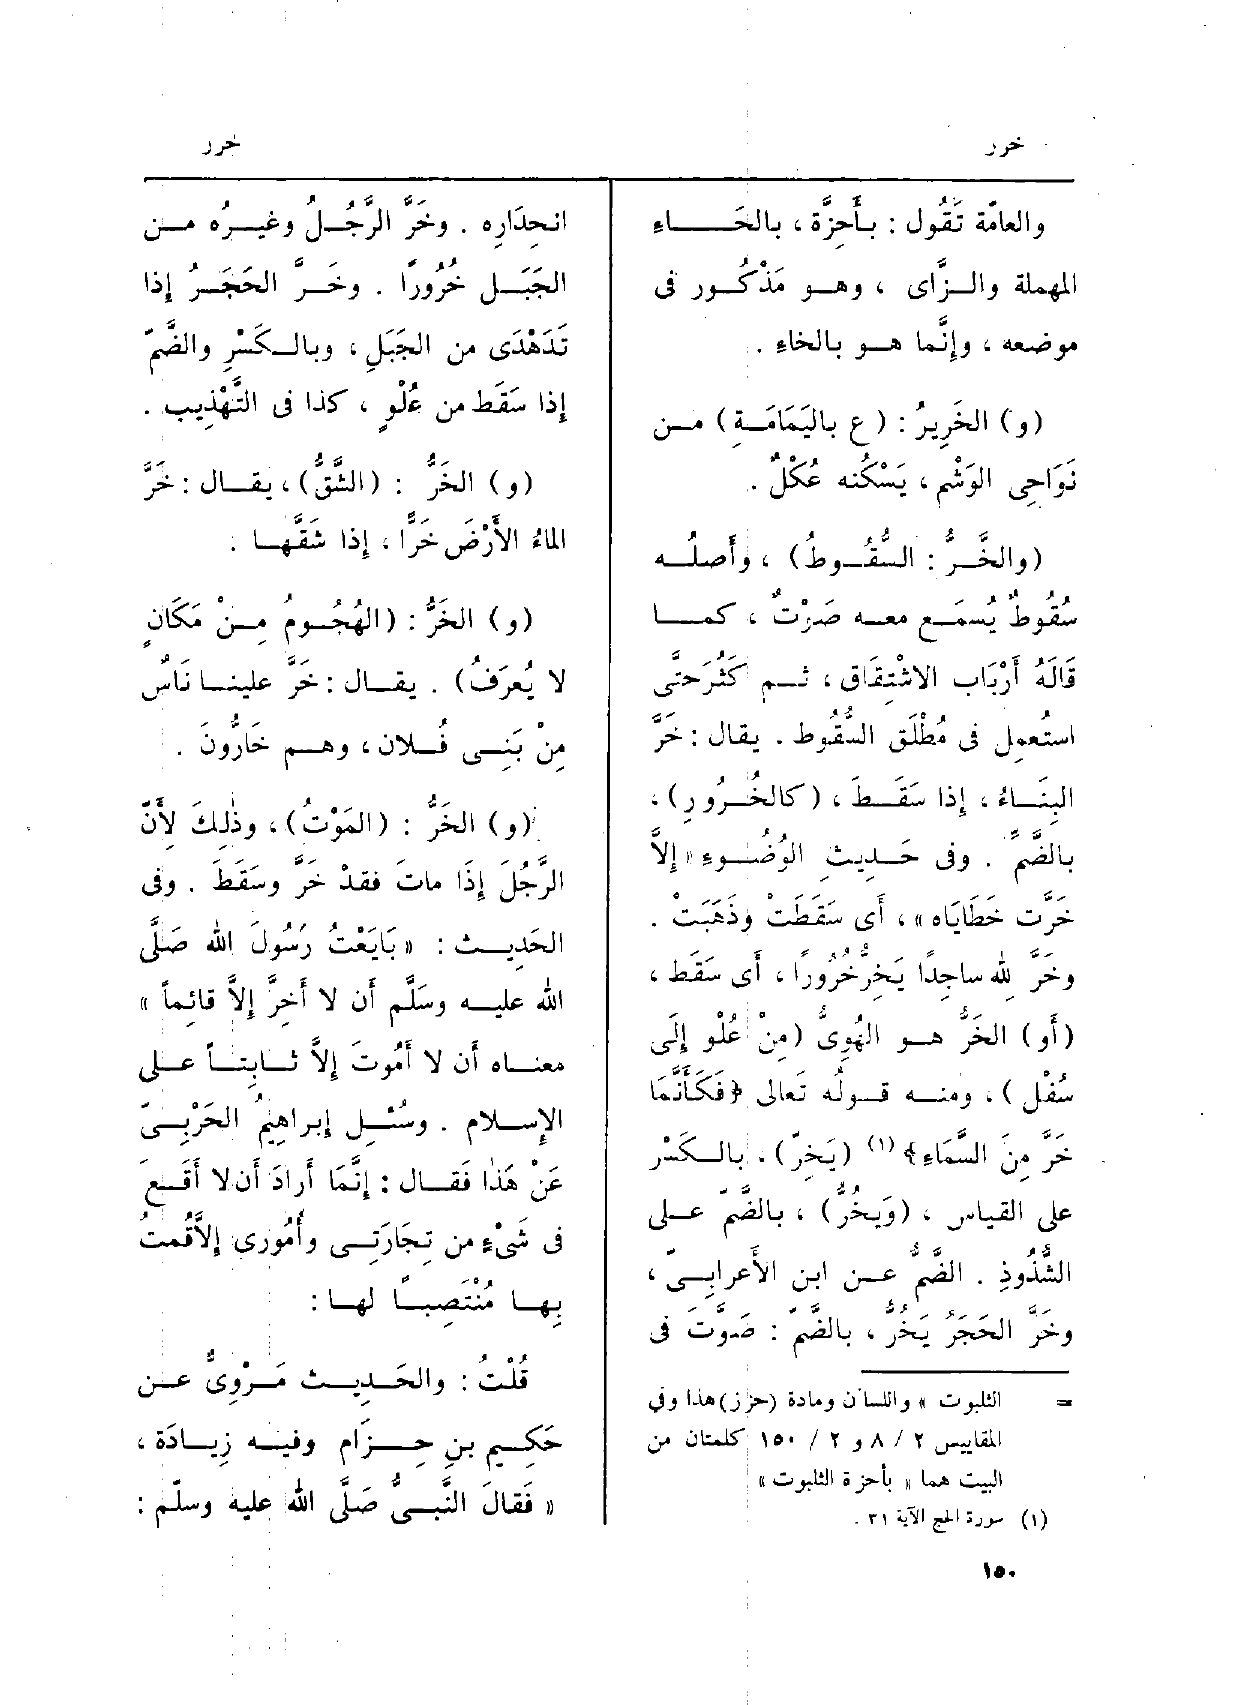 خرر
خرر
والعامّة تَقُول : بأَحِزَّة ، بالحَاءِ
المهملة والزَّاى ، وهو مَذْكُور فى
موضعه ، وإنَّما هو بالخاءِ .
(و) الخَرِيرُ : (ع باليَمَامَةِ) من
نَوَاحِى الوَشْم ، يَسْكُنه عُكْلٌ .
(والخَّرُّ : السُّقُوطُ) ، وأَصلُه
سُقُوطٌ يُسمَع معه صَوْتٌ ، كما
قَالَهُ أَرْبَاب الاشْتِقَاق ، ثم كَثُرَ حتَّى
استُعمِل فى مُطْلَق السُّقُوط . يقال : خَرَّ
البِنَاءُ ، إِذا سَقَطَ ، (كالخُرُورِ) ،
بالضَّمّ . وفى حَدِيثِ الوُضُوءِ «إِلاَّ
خَرَّت خَطَايَاه » ، أَى سَقَطَتْ وذَهَبَتْ .
وخَرَّ لِله ساجدًا يَخِرُّ خُرُورًا ، أَى سَقَط ،
(أَو) الخَرُّ هو الهُوِىُّ (مِنْ عُلْو إِلَى
سُفْل ) ، ومنه قولُه تَعالى ﴿فَكَأَنَّمَا
خَرَّ مِنَ السَّمَاءِ﴾ (١) (يَخِرّ) ، بالكَسْر
على القياس ، (وَيخُرُّ) ، بالضَّمّ على
الشُّذُوذِ . الضَّمُّ عن ابن الأَعرابِىّ ،
وخَرَّ الحَجَرُ يَخُرُّ ، بالضَّمّ : صَوَّت فى
= الثلبوت » واللسان ومادة (حزز) هذا وفي
المقاييس ٢ / ٨ و ٢ / ١٥٠ كلمتان من
البيت هما « بأحزة الثلبوت »
(١) سورة الحج الآية ٣١ .
١٥٠
انحِدَارِه . وخَرَّ الرَّجُلُ وغيرُه من
الجَبَل خُرُورًا . وخَرَّ الحَجَرُ إِذا
تَدَهْدَى من الجَبَلِ ، وبالكَسْرِ والضَّمّ
إِذا سَقَط من عُلْوٍ ، كذا فى التَّهْذِيب .
(و) الخَرُّ : (الشَّقُّ) ، يقال : خَرَّ
الماءُ الأَرْضَ خَرًّا ، إِذا شَقَّها .
(و) الخَرُّ : (الهُجُومُ مِنْ مَكَانٍ
لا يُعرَفُ) . يقال : خَرَّ علينا نَاسٌ
مِنْ بَنِى فُلان ، وهم خَارُّونَ .
(و) الخَرُّ : (المَوْتُ) ، وذٰلِكَ لأَنّ
الرَّجُلَ إِذَا ماتَ فقدْ خَرَّ وسَقَطَ . وفى
الحَدِيث : « بَايَعْتُ رَسُولَ الله صَلَّى
الله عليه وسَلَّم أَن لا أَخِرَّ إِلاَّ قائِماً »
معناه أَن لا أَمُوتَ إِلاَّ ثابِتاً على
الإِسلام . وسُئِل إِبراهِيمُ الحَرْبِىّ
عَنْ هَذَا فَقال : إِنَّمَا أَرادَ أَن لا أَقَعَ
فى شَىْءٍ من تِجَارَتِى وأُمُورى إِلاَّ قُمتُ
بها مُنْتَصِباً لها :
قُلْتُ : والحَدِيث مَرْوِىٌّ عن
حَكِيم بنِ حِزَام وفيه زِيادَة ،
« فَقالَ النَّبِىُّ صَلَّى الله عليه وسلّم :